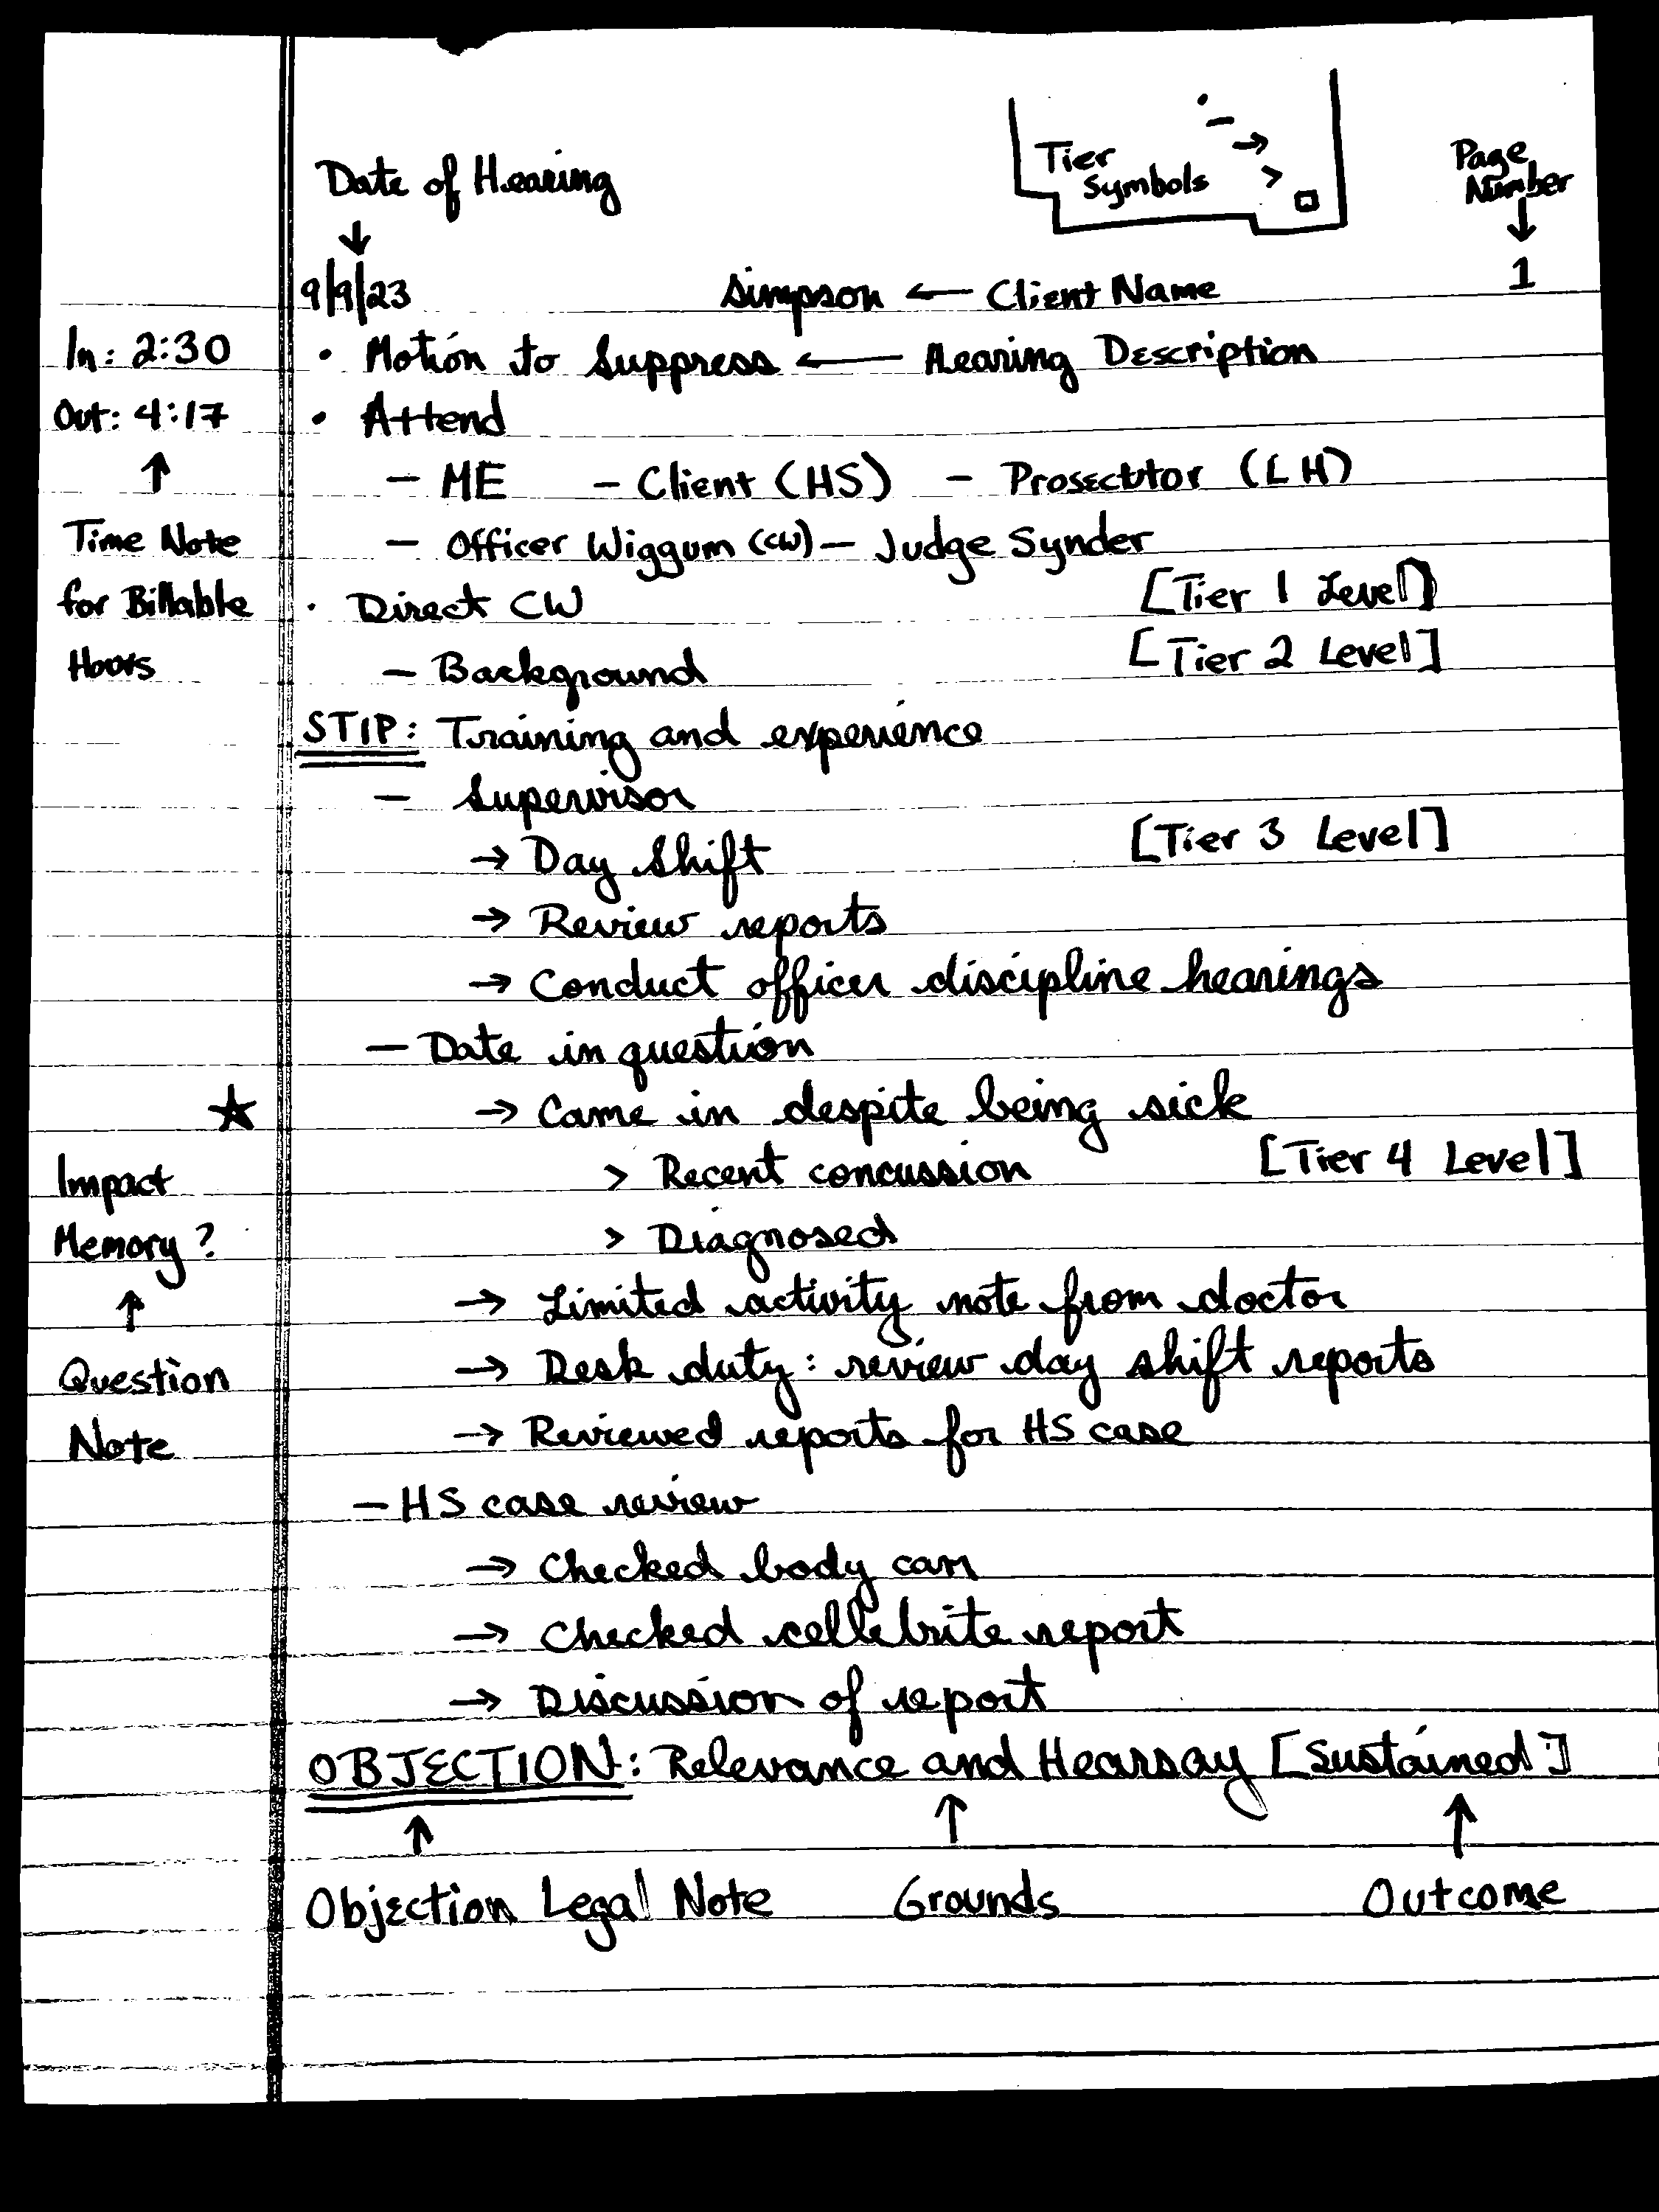 Date of Hearing
↓
Tier
Symbols
• – → > □
Page
Number
↓
9/9/23 Simpson ← Client Name 1
In: 2:30 • Motion to Suppress ← Hearing Description
Out: 4:17 • Attend
↑ – ME – Client (HS) – Prosecutor (LH)
Time Note – Officer Wiggum (CW) – Judge Synder
for Billable • Direct CW [Tier 1 Level]
Hours – Background [Tier 2 Level]
STIP: Training and experience
– Supervisor
→ Day Shift [Tier 3 Level]
→ Review reports
→ Conduct officer discipline hearings
– Date in question
☆ → Came in despite being sick
Impact > Recent concussion [Tier 4 Level]
Memory? > Diagnosed
↑ → Limited activity note from doctor
Question → Desk duty: review day shift reports
Note → Reviewed reports for HS case
– HS case review
→ Checked body cam
→ Checked cellebrite report
→ Discussion of report
OBJECTION: Relevance and Hearsay [Sustained]
↑ ↑ ↑
Objection Legal Note Grounds Outcome